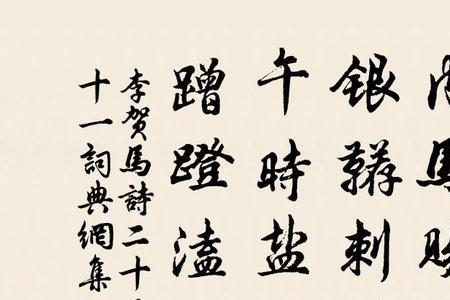 銀韉刺
午時盐
蹭蹬溘
李賀馬詩二十
十一詞典網集